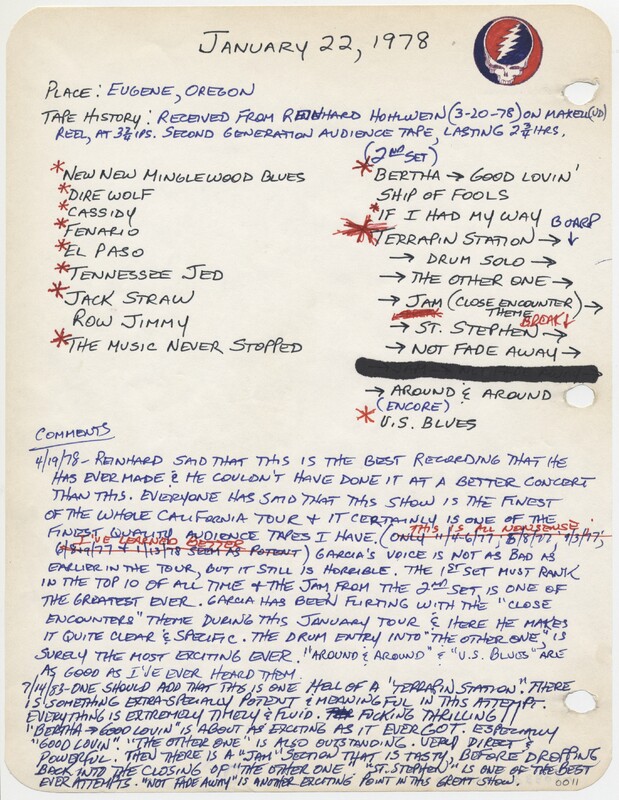 JANUARY 22, 1978
PLACE: EUGENE, OREGON
TAPE HISTORY: RECEIVED FROM REINHARD HOHLWEIN (3-20-78) ON MAXELL (UD)
REEL, AT 3 3/4 IPS. SECOND GENERATION AUDIENCE TAPE, LASTING 2 3/4 HRS.
*NEW NEW MINGLEWOOD BLUES
*DIRE WOLF
*CASSIDY
*FENARIO
*EL PASO
*TENNESSEE JED
*JACK STRAW
ROW JIMMY
*THE MUSIC NEVER STOPPED
(2ND SET)
*BERTHA → GOOD LOVIN'
SHIP OF FOOLS
*IF I HAD MY WAY BOARD
*TERRAPIN STATION → ↓
→ DRUM SOLO →
→ THE OTHER ONE →
→ JAM (CLOSE ENCOUNTER) →
THEME
BREAK ↓
→ ST. STEPHEN →
→ NOT FADE AWAY →
→ AROUND & AROUND
(ENCORE)
*U.S. BLUES
COMMENTS
4/19/78 - REINHARD SAID THAT THIS IS THE BEST RECORDING THAT HE
HAS EVER MADE & HE COULDN'T HAVE DONE IT AT A BETTER CONCERT
THAN THIS. EVERYONE HAS SAID THAT THIS SHOW IS THE FINEST
OF THE WHOLE CALIFORNIA TOUR & IT CERTAINLY IS ONE OF THE
THIS IS ALL NONSENSE.
FINEST QUALITY AUDIENCE TAPES I HAVE. (ONLY
I'VE LEARNED BETTER
& 1/13/78 SEEM AS POTENT) GARCIA'S VOICE IS NOT AS BAD AS
EARLIER IN THE TOUR, BUT IT STILL IS HORRIBLE. THE 1ST SET MUST RANK
IN THE TOP 10 OF ALL TIME & THE JAM FROM THE 2ND SET IS ONE OF
THE GREATEST EVER. GARCIA HAS BEEN FLIRTING WITH THE "CLOSE
ENCOUNTERS" THEME DURING THIS JANUARY TOUR & HERE HE MAKES
IT QUITE CLEAR & SPECIFIC. THE DRUM ENTRY INTO "THE OTHER ONE," IS
SURELY THE MOST EXCITING EVER. "AROUND & AROUND" & "U.S. BLUES" ARE
AS GOOD AS I'VE EVER HEARD THEM.
7/14/83 - ONE SHOULD ADD THAT THIS IS ONE HELL OF A "TERRAPIN STATION". THERE
IS SOMETHING EXTRA-SPECIALLY POTENT & MEANINGFUL IN THIS ATTEMPT.
EVERYTHING IS EXTREMELY TIMELY & FLUID. FUCKING THRILLING!!
"BERTHA → GOOD LOVIN" IS ABOUT AS EXCITING AS IT EVER GOT. ESPECIALLY
"GOOD LOVIN". "THE OTHER ONE" IS ALSO OUTSTANDING. VERY DIRECT &
POWERFUL. THEN THERE IS A "JAM" SECTION THAT IS TASTY, BEFORE DROPPING
BACK INTO THE CLOSING OF "THE OTHER ONE". "ST. STEPHEN" IS ONE OF THE BEST
EVER ATTEMPTS. "NOT FADE AWAY" IS ANOTHER EXCITING POINT IN THIS GREAT SHOW.
0011